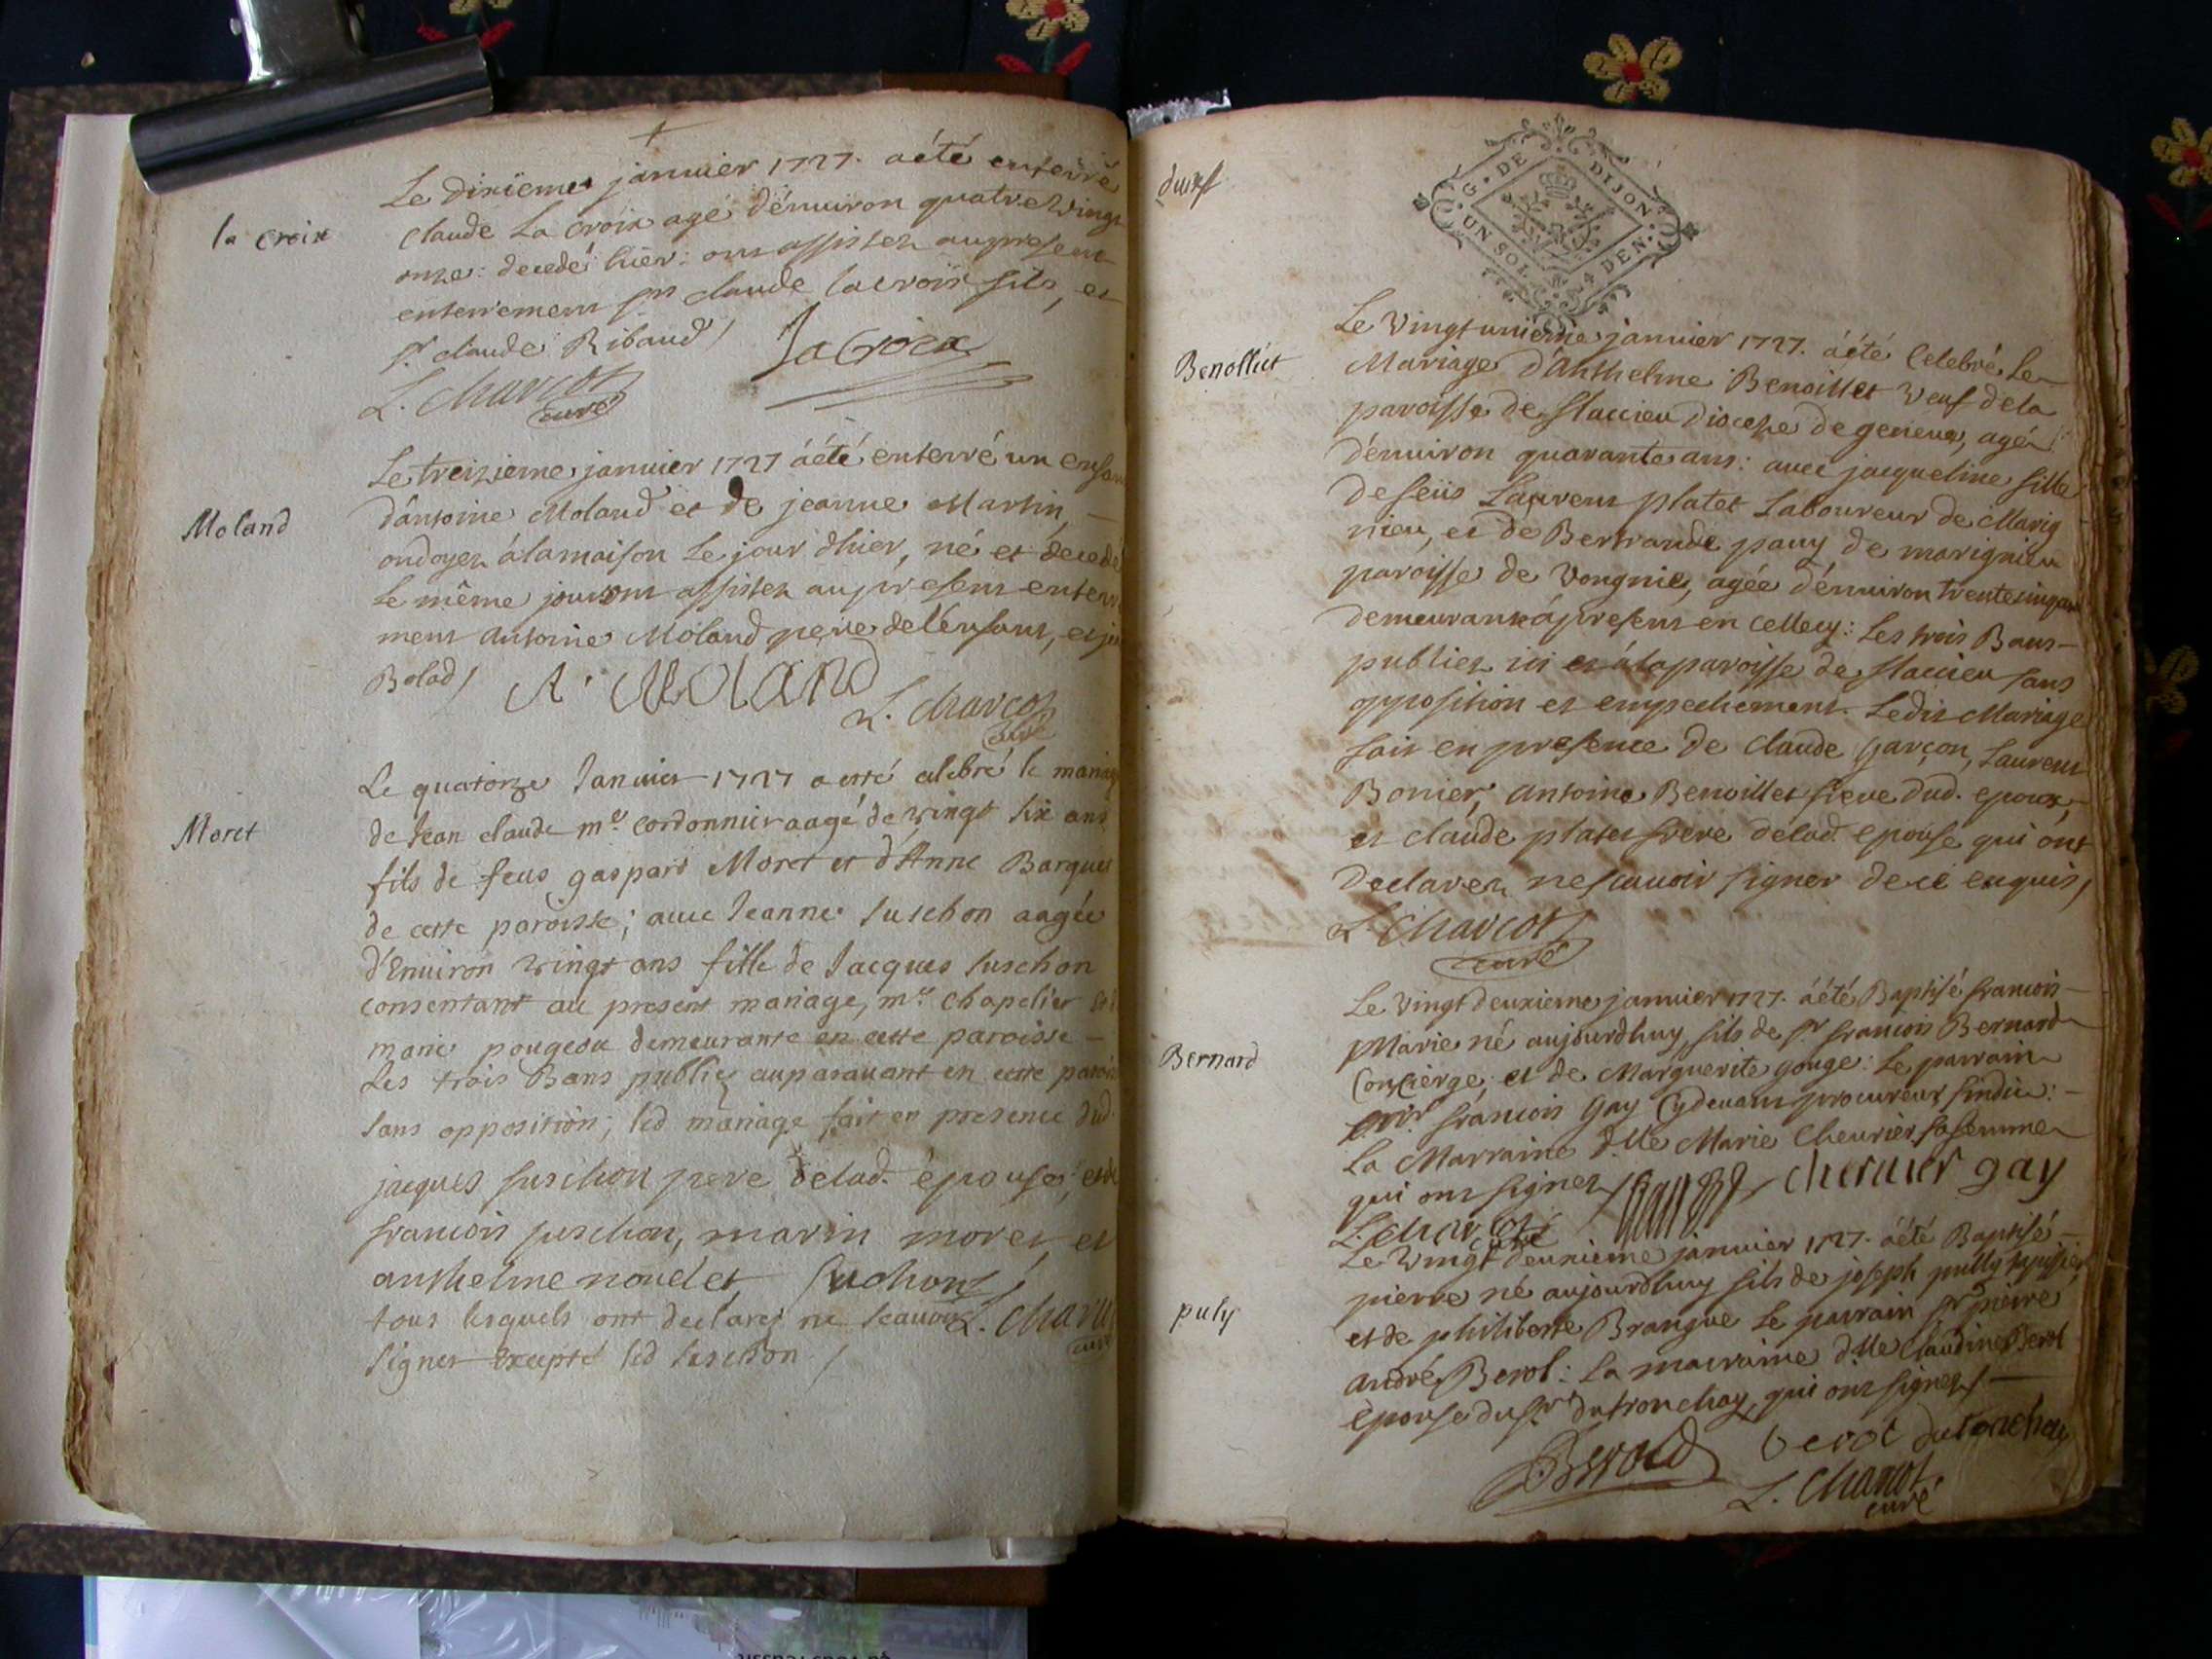 la croix
Le dixieme janvier 1727. a été enterré
claude La croix agé d'environ quatre vingt
onze: decedé hier: ont assistez au present
enterrement sr claude lacroix fils, et
sr claude Ribaud /
LaCroix
L. Charcot
curé
Moland
Le treizieme janvier 1727 a été enterré un enfan
d'antoine Moland et de jeanne Martin,
ondoyez á la maison le jour d'hier, né et decedé
le même jour ont assistez au present enterre
ment antoine Moland pere de l'enfant, et
Bolad /
A. MOLAND
L. Charcot
curé
Moret
Le quatorze Janvier 1727 a esté celebré le mariag
de Jean claude me cordonnier aagé de vingt six ans
fils de feus gaspard Moret et d'Anne Barques
de cette paroisse; avec Jeanne Suschon aagée
d'Environ vingt ans fille de Jacques suschon
consentant au present mariage, me chapelier et
marie pougeou demeurante en cette paroisse
Les trois Bans publiez auparavant en cette parois
sans opposition; led mariage fait en presence dud.
jacques suschon pere de lad. épouse, et de
francois suschon, marin moret, et
anthelme noudet, Suchon
tous lesquels ont declarez ne scauoir
L. Charco
curé
signer excepté led suschon /
G. DE DIJON
UN SOL 4 DEN.
Benoillet
Le vingt unieme janvier 1727. á été Celebré Le
Mariage d'Anthelme Benoillet veuf de la
paroisse de flaccieu dioceze de geneve, agé
d'environ quarante ans: avec jacqueline fille
de feüs Laurent platet Laboureur de Marig
nieu, et de Bertrande pauy de marignieu
paroisse de Vongnie, agée d'environ trente cinq ans
demeurant á present en cellecy: Les trois Bans
publiez ici et á la paroisse de flaccieu sans
opposition et empechement. Ledit Mariage
fait en presence de claude garçon, Laurent
Bonier, antoine Benoillet frere dud. epoux,
et claude platet frere de lad. epouse qui ont
Declarez ne scavoir signer de ce enquis,
L. Charcot
curé
Bernard
Le vingt deuxieme janvier 1727. á été Baptisé francois
Marie né aujourdhuy, fils de sr francois Bernard
Concierge, et de Marguerite gouge: Le parrain
francois Gay Cydevant procureur sindic:
La Marraine d.lle Marie Cheurier sa femme
qui ont signez /
cheruier gay
L. Charcot
curé
puly
Le vingt deuxieme janvier 1727. á été Baptisé
pierre né aujourdhuy fils de joseph pully
et de philiberte Brangue Le parrain sr pierre
andré Berol: La marraine d.lle Claudine Berol
épouse du sr dutronchay, qui ont signez /
Beroud
verot dutronchay
L. Charcot.
curé